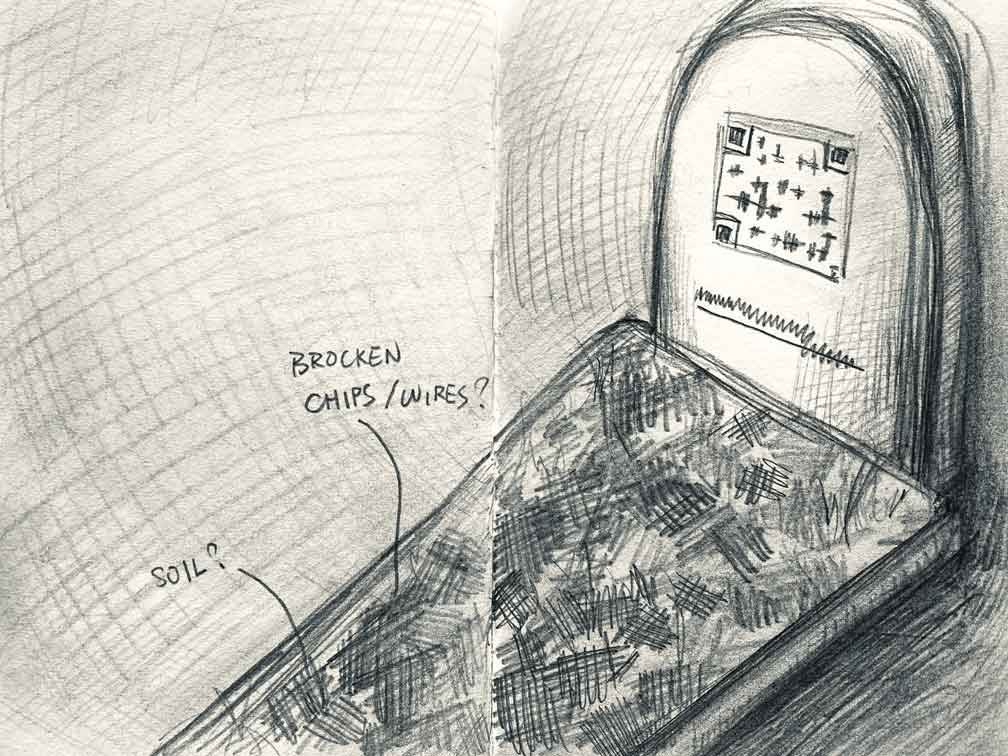 BROCKEN
CHIPS/WIRES?
SOIL?